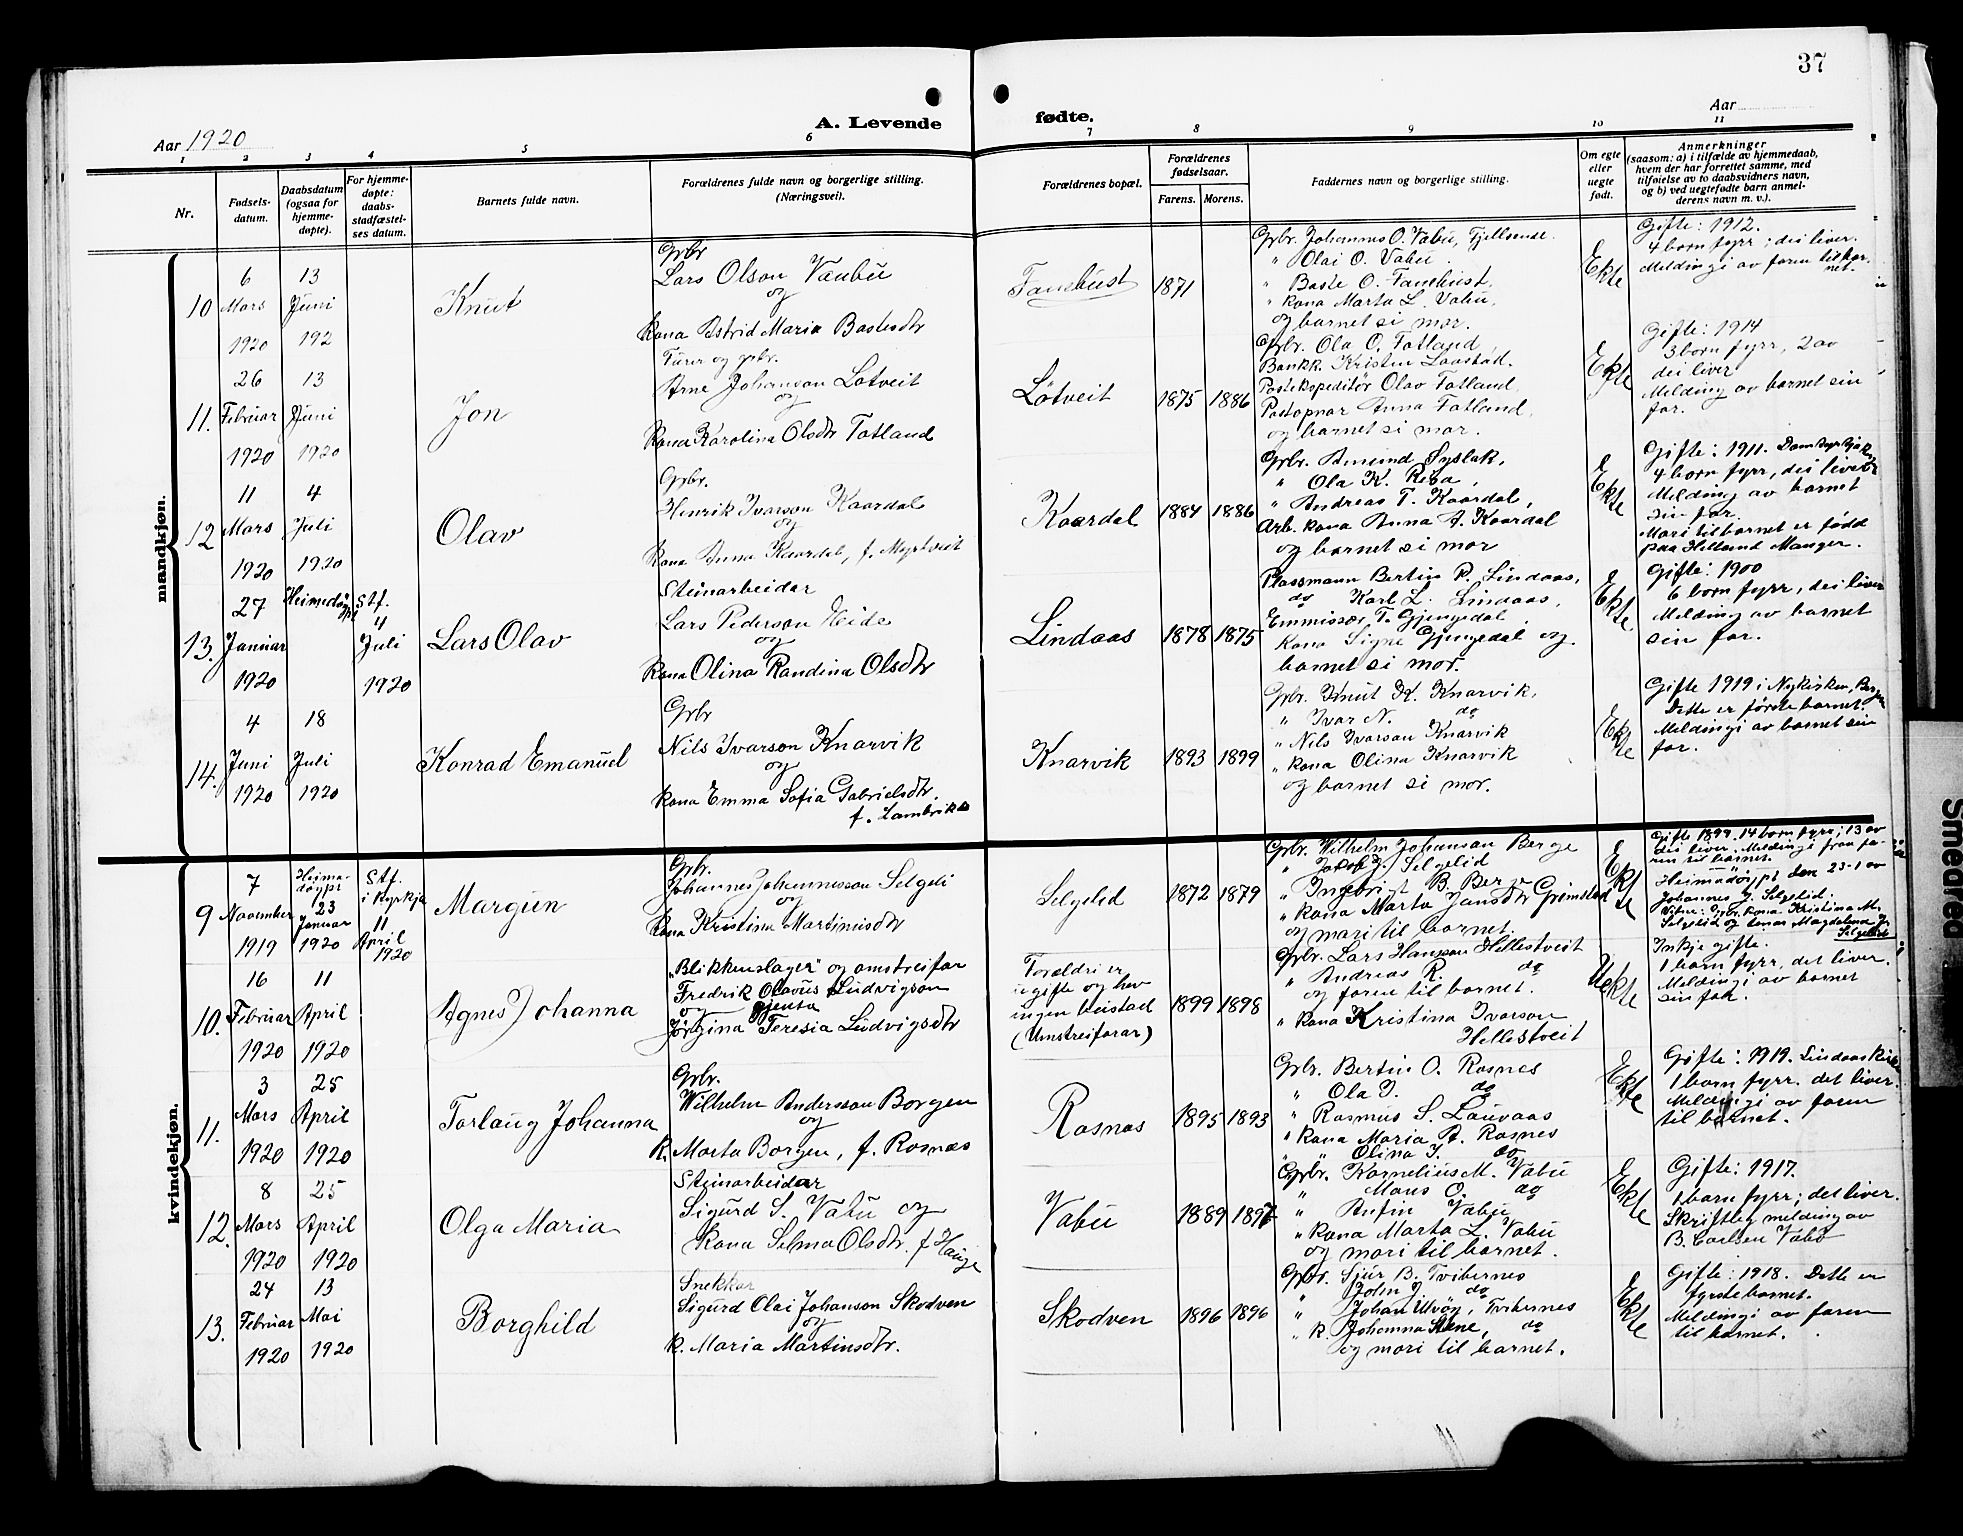 37
Aar 1920
A. Levende
fødte.
Aar
1 2 3 4 5 6 7 8 9 10 11
Nr.
Fødsels-
datum.
Daabsdatum
(ogsaa for
hjemme-
døpte).
For hjemme-
døpte:
daabs-
stadfæstel-
ses datum.
Barnets fulde navn.
Forældrenes fulde navn og borgerlige stilling.
(Næringsvei).
Forældrenes bopæl.
Forældrenes
fødselsaar.
Farens. Morens.
Faddernes navn og borgerlige stilling.
Om egte
eller
uegte
født.
Anmerkninger
(saasom: a) i tilfælde av hjemmedaab,
hvem der har forrettet samme, med
tilføielse av to daabsvidners navn,
og b) ved uegtefødte barn anmel-
derens navn m. v.).
mandkjøn.
10
6
Mars
1920
13
Juni
192
Knut
Grbr
Lars Olson Vaubu
og
Kona Astrid Maria Bastesdtr
1871
Grbr. Johannes O. Vabu, Fjellsende.
" Olai O. Vabu.
" Baste O.
" kona Marta L. Vabu,
og barnet si mor.
Ekte
Gifte: 1912.
4 born fyrr; dei liver.
Meldingi av faren til bar-
net.
11.
26
Februar
1920
13
Juni
1920
Jon
Furer og grbr.
Arne Johanson Lotveit
og
Kona Karolina Olsdtr Totland
Lotveit
1875
1886
Grbr. Ola O. Totland,
Bankk. Kristen
Postekspeditör Olav Totland,
Postopnar Anna Totland,
og barnet si mor.
Ekte
Gifte: 1914
3 born fyrr, 2 av
dei liver
Melding av barnet sin
far.
12
11
Mars
1920
4
Juli
1920
Olav
Grbr.
Henrik Ivarson Kaardal
og
Kona Anna Kaardal, f. Myrtveit
Kaardal
1884
1886
Grbr. Amund Syslak,
" Ola K.
" Andreas T. Kaardal,
Arb. kona Anna A. Kaardal
og barnet si mor
Ekte
Gifte: 1911.
4 born fyrr, dei liver
Melding av barnet
sin far.
Mori til barnet er fødd
paa Helland Manger.
13.
27
Januar
1920
Heimedöypt
Stf.
4
Juli
1920
Lars Olav
Steinarbeidar
Lars Pederson Heide
og
Kona Olina Randina Olsdtr
Lindaas
1878
1875
Plassmann Bertin P. Lindaas,
do Karl L. Lindaas,
Emmissær, T. Gjengedal
Kona Signe Gjengedal og
barnet si mor.
Ekte
Gifte: 1900
6 born fyrr, dei liver
Melding av barnet
sin far.
14.
4
Juni
1920
18
Juli
1920
Konrad Emanuel
Grbr
Nils Ivarson Knarvik
og
kona Emma Sofia Gabrielsdtr.
Knarvik
1893
1899
Grbr. Knut K. Knarvik,
" Ivar N. do
" Nils Ivarson Knarvik
" kona Olina Knarvik
og barnet si mor.
Ekte
Gifte 1919 i Nykirken, Bergen
Dette er förste barnet.
Meldingi av barnet sin
far.
kvindekjøn.
9
7
November
1919
Heima-
döypt
23
Januar
1920
Stf.
i kyrkja
11
April
1920
Margun
Grbr.
Johannes Johannesson Selgeli
og
Kona Kristina Martinusdtr
Selgelid
1872
1879
Grbr. Wilhelm Johanson Berge
" Jacob J. Selgelid
" Ingebrigt B. Berge
" kona Marta Jansdtr Grimstad
og mori til barnet.
Ekte
Gifte 1899. 14 born fyrr; 13 av
dei liver. Meldingi fraa fa-
ren til barnet.
Heimadöypt den 23-1 av
Johannes J. Selgelid.
Vitne: Grbr. kona Kristina M.
Selgelid og Magdalena J.
Selgelid
10.
16
Februar
1920
11
April
1920
Agnes Johanna
"Blikkenslager" og omstreifar
Fredrik Olavus Ludvigson
og gjenta
Jörgina Teresia Ludvigsdtr
Foreldri er
ugifte og hev
ingen heistad
(Umstreifarar)
1899
1898
Grbr. Lars Hanson Hellestveit
" Andreas R. do
og faren til barnet.
" Kona Kristina Ivarson
Hellestveit
Uekte
Inkje gifte.
1 barn fyrr, det liver.
Meldingi av barnet
sin far.
11.
3
Mars
1920
25
April
1920
Torlaug Johanna
Grbr.
Wilhelm Andersson Borgen
og
K. Marta Borgen, f. Rosnes
Rosnes
1895
1893
Grbr. Bertin O. Rosnes
" Ola J. do
" Rasmus S. Lauvaas
" Kona Maria A. Rosnes
" " Olina J. do
Ekte
Gifte: 1919. Lindaas kirke
1 barn fyrr. det liver.
Meldingi av faren
til barnet.
12.
8
Mars
1920
25
April
1920
Olga Maria
Steinarbeidar
Sigurd S. Vabu og
Kona Selma Olsdtr. f Hauge
Vabu
1889
1897
Grbr. Kornelius M. Vabu
" Mons O. do
" Anfin Vabu
" Kona Marta L. Vabu
og mori til barnet.
Ekte
Gifte: 1917.
1 barn fyrr; det liver.
Skriftleg melding av
B. Carlsen Vabø
13.
24
Februar
1920
13
Mai
1920
Borghild
Snekkar
Sigurd Olai Johanson Skodven
og
k. Maria Martinsdtr.
Skodven
1896
1896
Grbr. Sjur B. Tvibernes
" John J. do
" Johan Uröy, Tvibernes
" k. Johanna Stene, do
og mori til barnet.
Ekte
Gifte: 1918. Dette er
fyrste barnet.
Meldingi av faren
til barnet.
Smedred